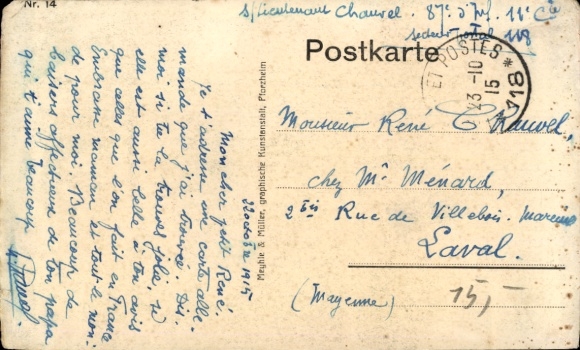 Nr. 14
S/Lieutenant Chauvel. 87e d'Inf. 11e Cie
Secteur postal 118
Postkarte
ET POSTES
23-10
15
118 *
Monsieur René Chauvel,
chez Mr Ménard,
2 bis Rue de Villebois-Mareuil
Laval.
(Mayenne)
15,-
Meyhle & Müller, graphische Kunstanstalt, Pforzheim
22 octobre 1915
Mon cher petit René.
Je t'adresse une carte alle-
mande que j'ai trouvée. Dis
moi si tu la trouves jolie, si
elle est aussi belle à ton avis
que celles que l'on fait en France
Embrasse maman et tout le mon-
de pour moi. Beaucoup de
baisers affectueux de ton papa
qui t'aime beaucoup